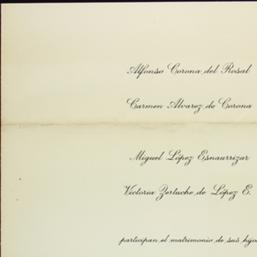 Alfonso Corona del Rosal
Carmen Alvarez de Corona
Miguel López Esnaurrizar
Victoria Zertuche de López E.
participan el matrimonio de sus hijo